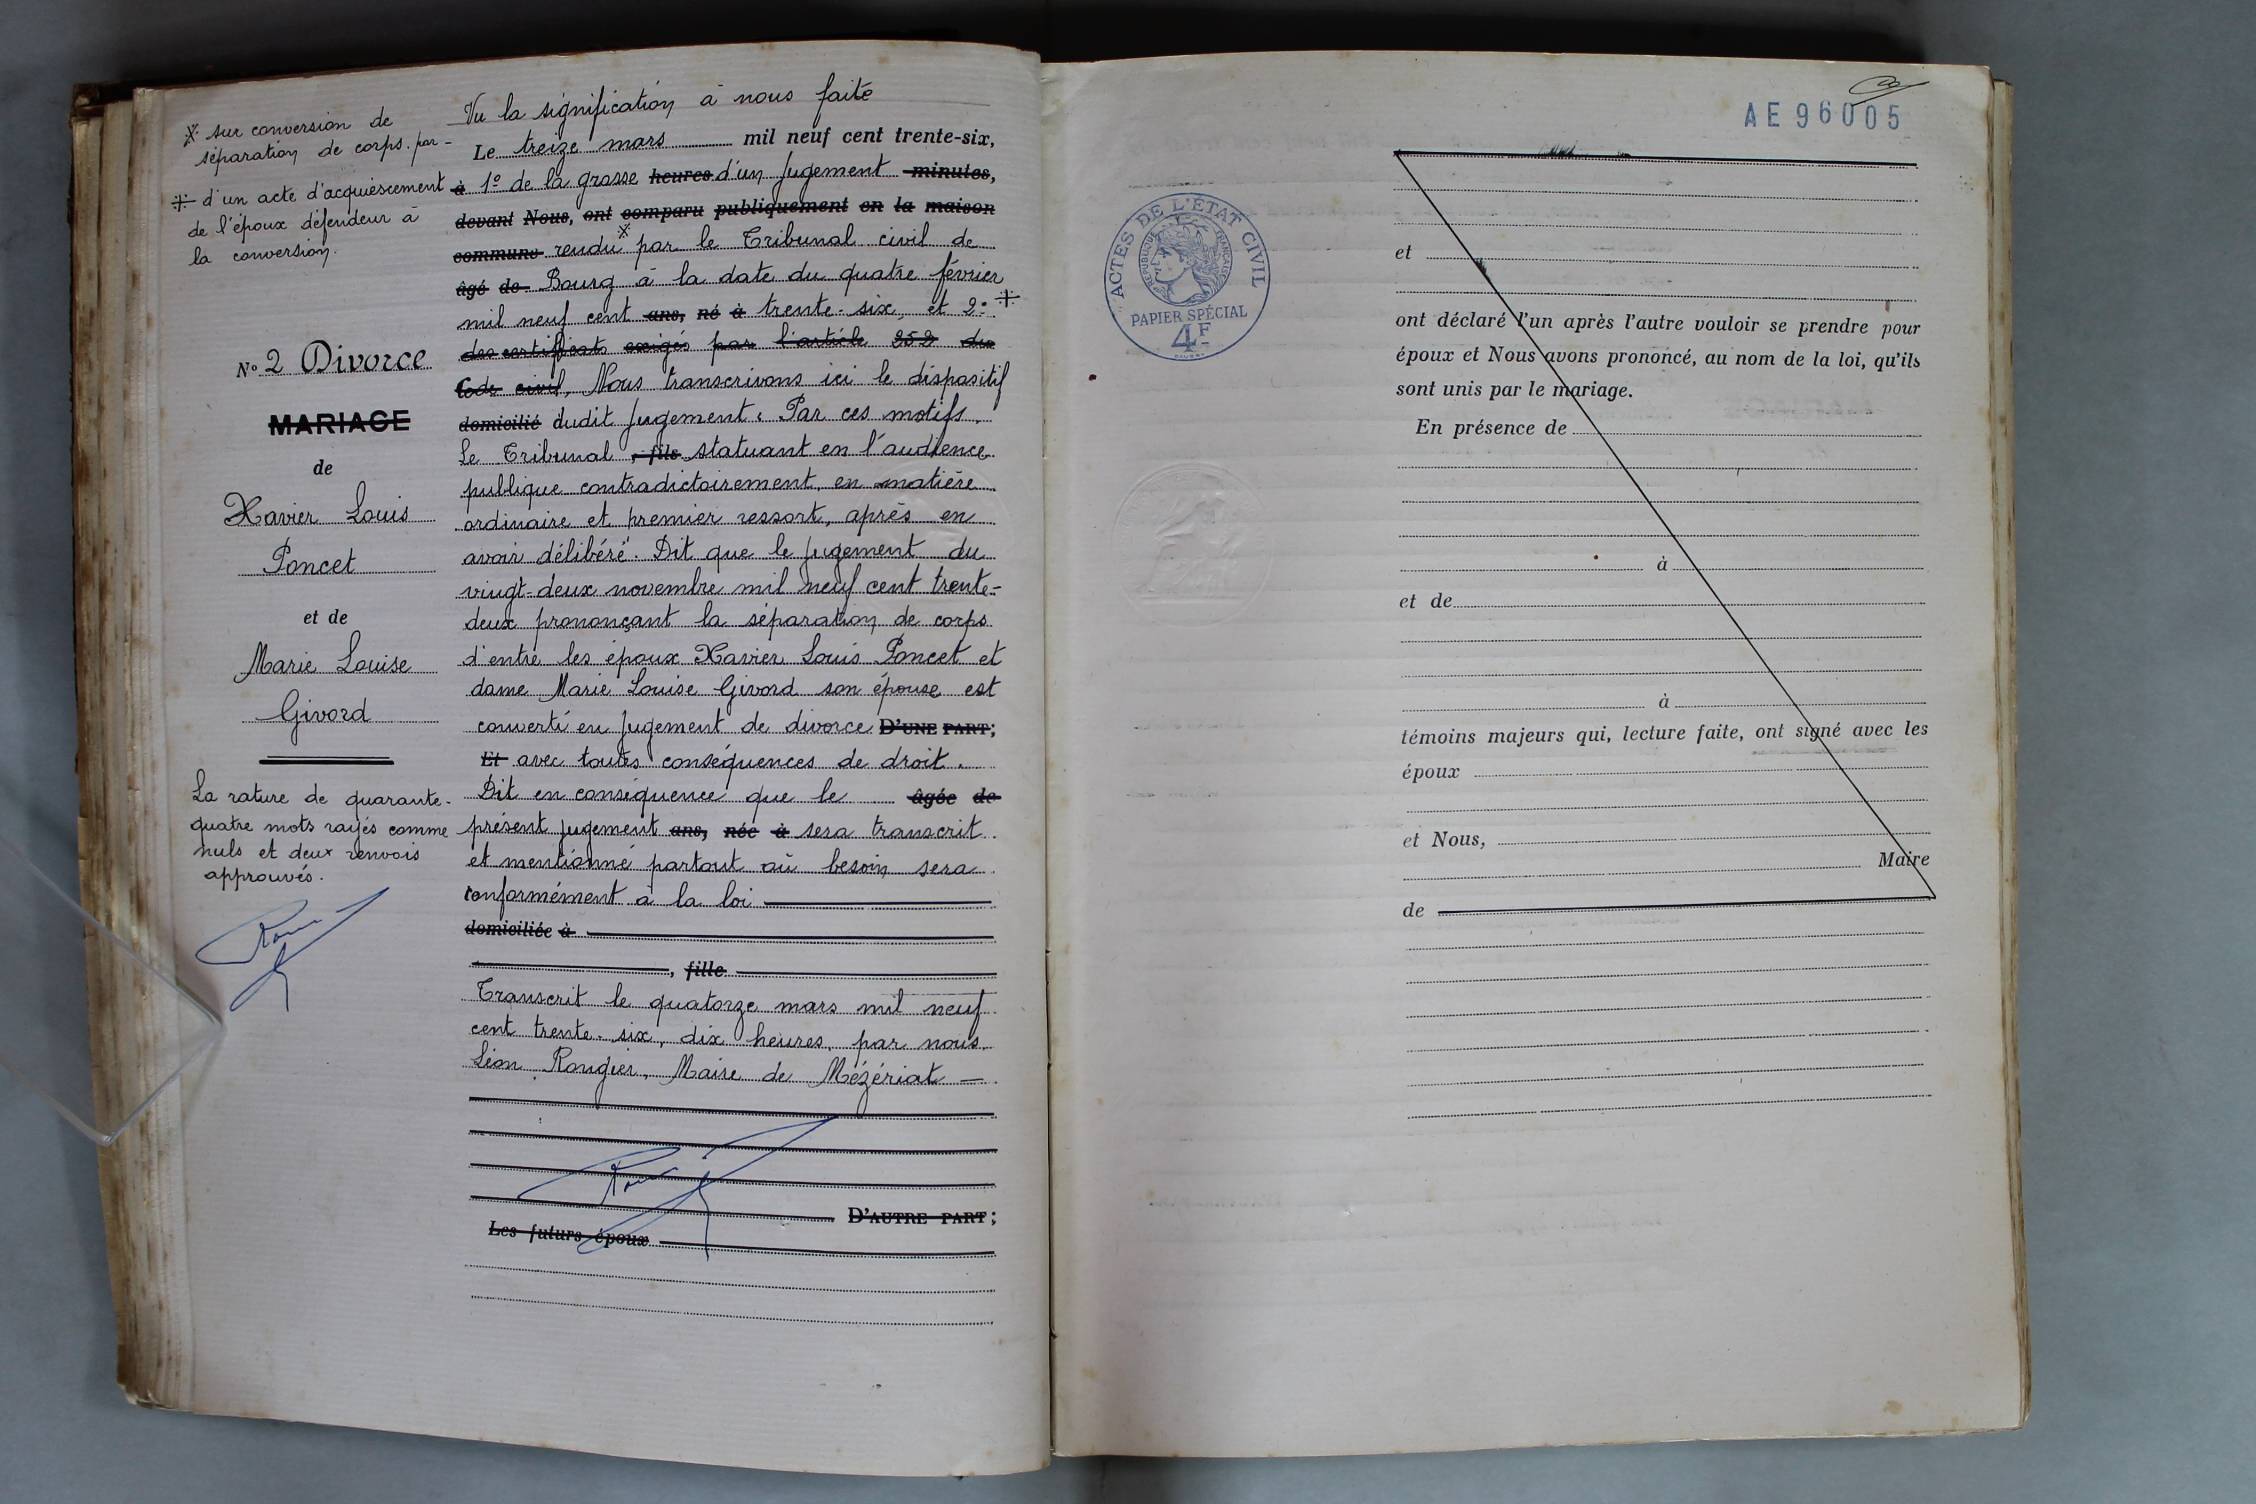 ※ sur conversion de
séparation de corps. par-
⁜ d'un acte d'acquiescement
de l'époux défendeur à
la conversion.
N° 2 Divorce
MARIAGE
de
Xavier Louis
Poncet
et de
Marie Louise
Givord
La rature de quarante-
quatre mots rayés comme
nuls et deux renvois
approuvés.
Vu la signification à nous faite
Le treize mars mil neuf cent trente-six,
à 1° de la grosse heures d'un jugement minutes,
devant Nous, ont comparu publiquement en la maison
commune rendu ※ par le Tribunal civil de
âgé de Bourg à la date du quatre février
mil neuf cent ans, né à trente-six, et 2° ⁜
des certificats exigés par l'article 252 du
Code civil, Nous transcrivons ici le dispositif
domicilié dudit jugement : Par ces motifs.
Le Tribunal , fils statuant en l'audience
publique contradictoirement, en matière
ordinaire et premier ressort, après en
avoir délibéré. Dit que le jugement du
vingt-deux novembre mil neuf cent trente-
deux prononçant la séparation de corps
d'entre les époux Xavier Louis Poncet et
dame Marie Louise Givord son épouse est
converti en jugement de divorce D'UNE PART;
Et avec toutes conséquences de droit.
Dit en conséquence que le âgée de
présent jugement ans, née à sera transcrit
et mentionné partout où besoin sera
conformément à la loi
domiciliée à
, fille
Transcrit le quatorze mars mil neuf
cent trente-six, dix heures, par nous
Léon Rougier, Maire de Mézériat —
D'AUTRE PART;
Les futurs époux
AE 96005
ACTES DE L'ÉTAT CIVIL
RÉPUBLIQUE FRANÇAISE
PAPIER SPÉCIAL
4F
et
ont déclaré l'un après l'autre vouloir se prendre pour
époux et Nous avons prononcé, au nom de la loi, qu'ils
sont unis par le mariage.
En présence de
à
et de
à
témoins majeurs qui, lecture faite, ont signé avec les
époux
et Nous,
Maire
de